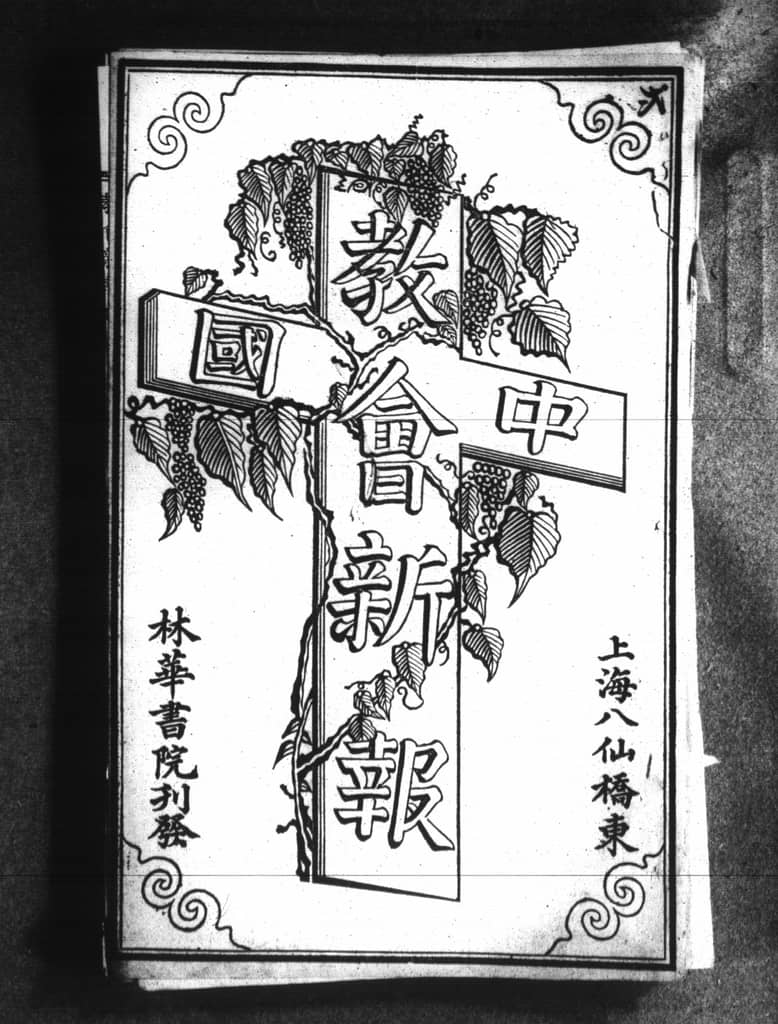 上海八仙橋東
中國
教會新報
林華書院刊發